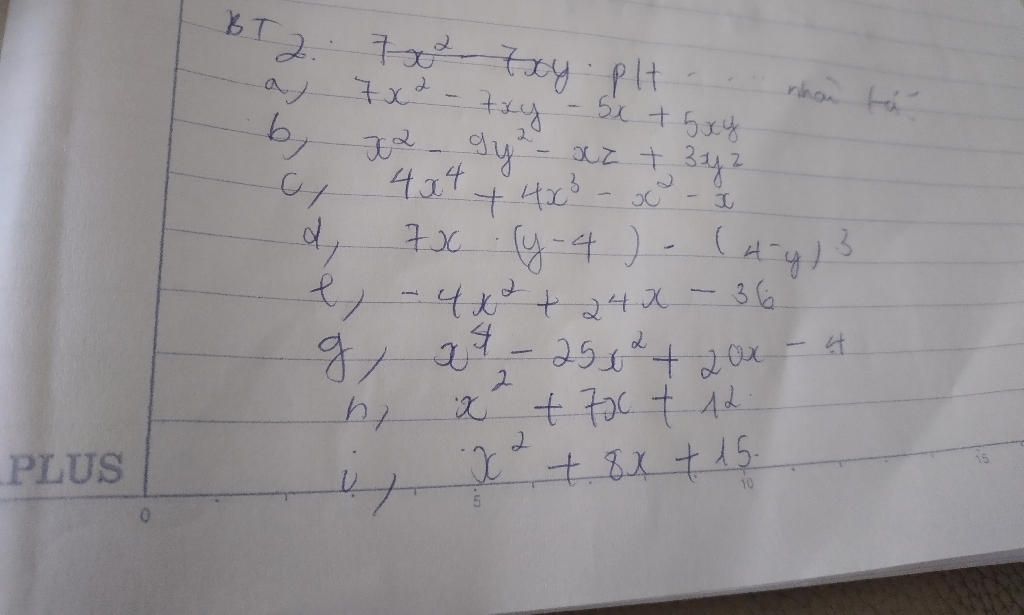 BT 2: 7x² - 7xy. plt ..... nhân tử
a, 7x² - 7xy - 5x + 5xy
b, x² - 9y² - xz + 3yz
c, 4x⁴ + 4x³ - x² - x
d, 7x . (y - 4) - (4 - y)³
e, - 4x² + 24x - 36
g, x⁴ - 25x² + 20x - 4
h, x² + 7x + 12
i, x² + 8x + 15.
PLUS
0 5 10 15